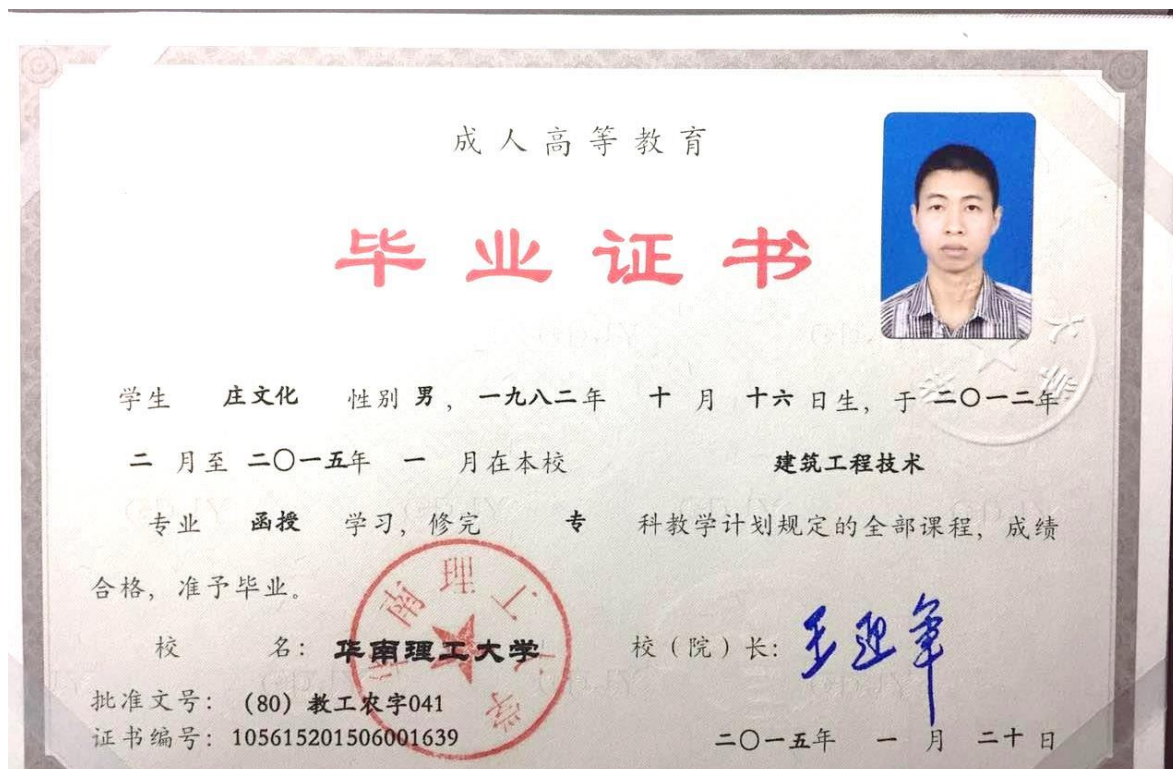 成人高等教育
毕业证书
学生 庄文化 性别 男，一九八二年 十 月 十六 日生，于 二〇一二年
二 月至 二〇一五年 一 月在本校 建筑工程技术
专业 函授 学习，修完 专 科教学计划规定的全部课程，成绩
合格，准予毕业。
校 名：华南理工大学 校（院）长：
批准文号：(80) 教工农字041
证书编号：105615201506001639 二〇一五年 一 月 二十 日
华南理工大学